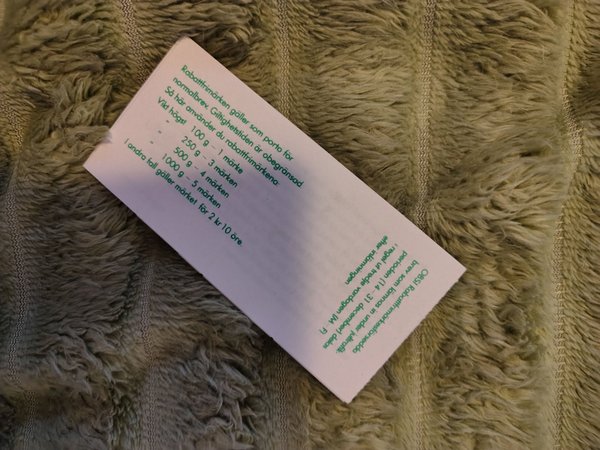 Rabattfrimärken gäller som porto för
normalbrev. Giltighetstiden är obegränsad
Så här använder du rabattfrimärkena:
Vikt högst 100 g – 1 märke
" 250 g – 3 märken
" 500 g – 4 märken
" 1000 g – 5 märken
I andra fall gäller märket för 2 kr 10 öre.
OBS! Rabattfrimärksfrankerade
brev som lämnas in under jultrafik-
perioden (14–31 december) delas
i regel ut tredje vardagen (M–F)
efter inlämningen.